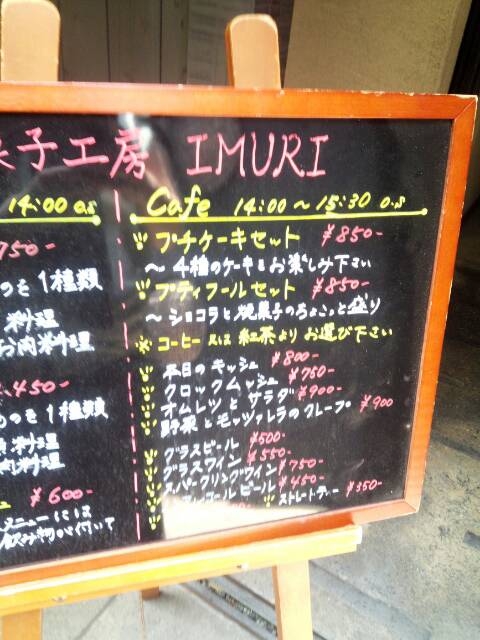 子工房 IMURI
14:00 O.S
750-
1種類
料理
お肉料理
450-
1種類
肉料理
¥600-
メニューには
飲み物が付いて
Cafe 14:00～15:30 O.S
プチケーキセット ¥850-
～4種のケーキをお楽しみ下さい
プティフールセット ¥850-
～ショコラと焼菓子のちょこっと盛り
※コーヒー又は紅茶よりお選び下さい
本日のキッシュ ¥800-
クロックムッシュ ¥750-
オムレツとサラダ ¥900-
野菜とモッツァレラのクレープ ¥900
グラスビール ¥500-
グラスワイン ¥550-
スパークリングワイン ¥750-
ルコールビール ¥450-
ストレートティー ¥350-